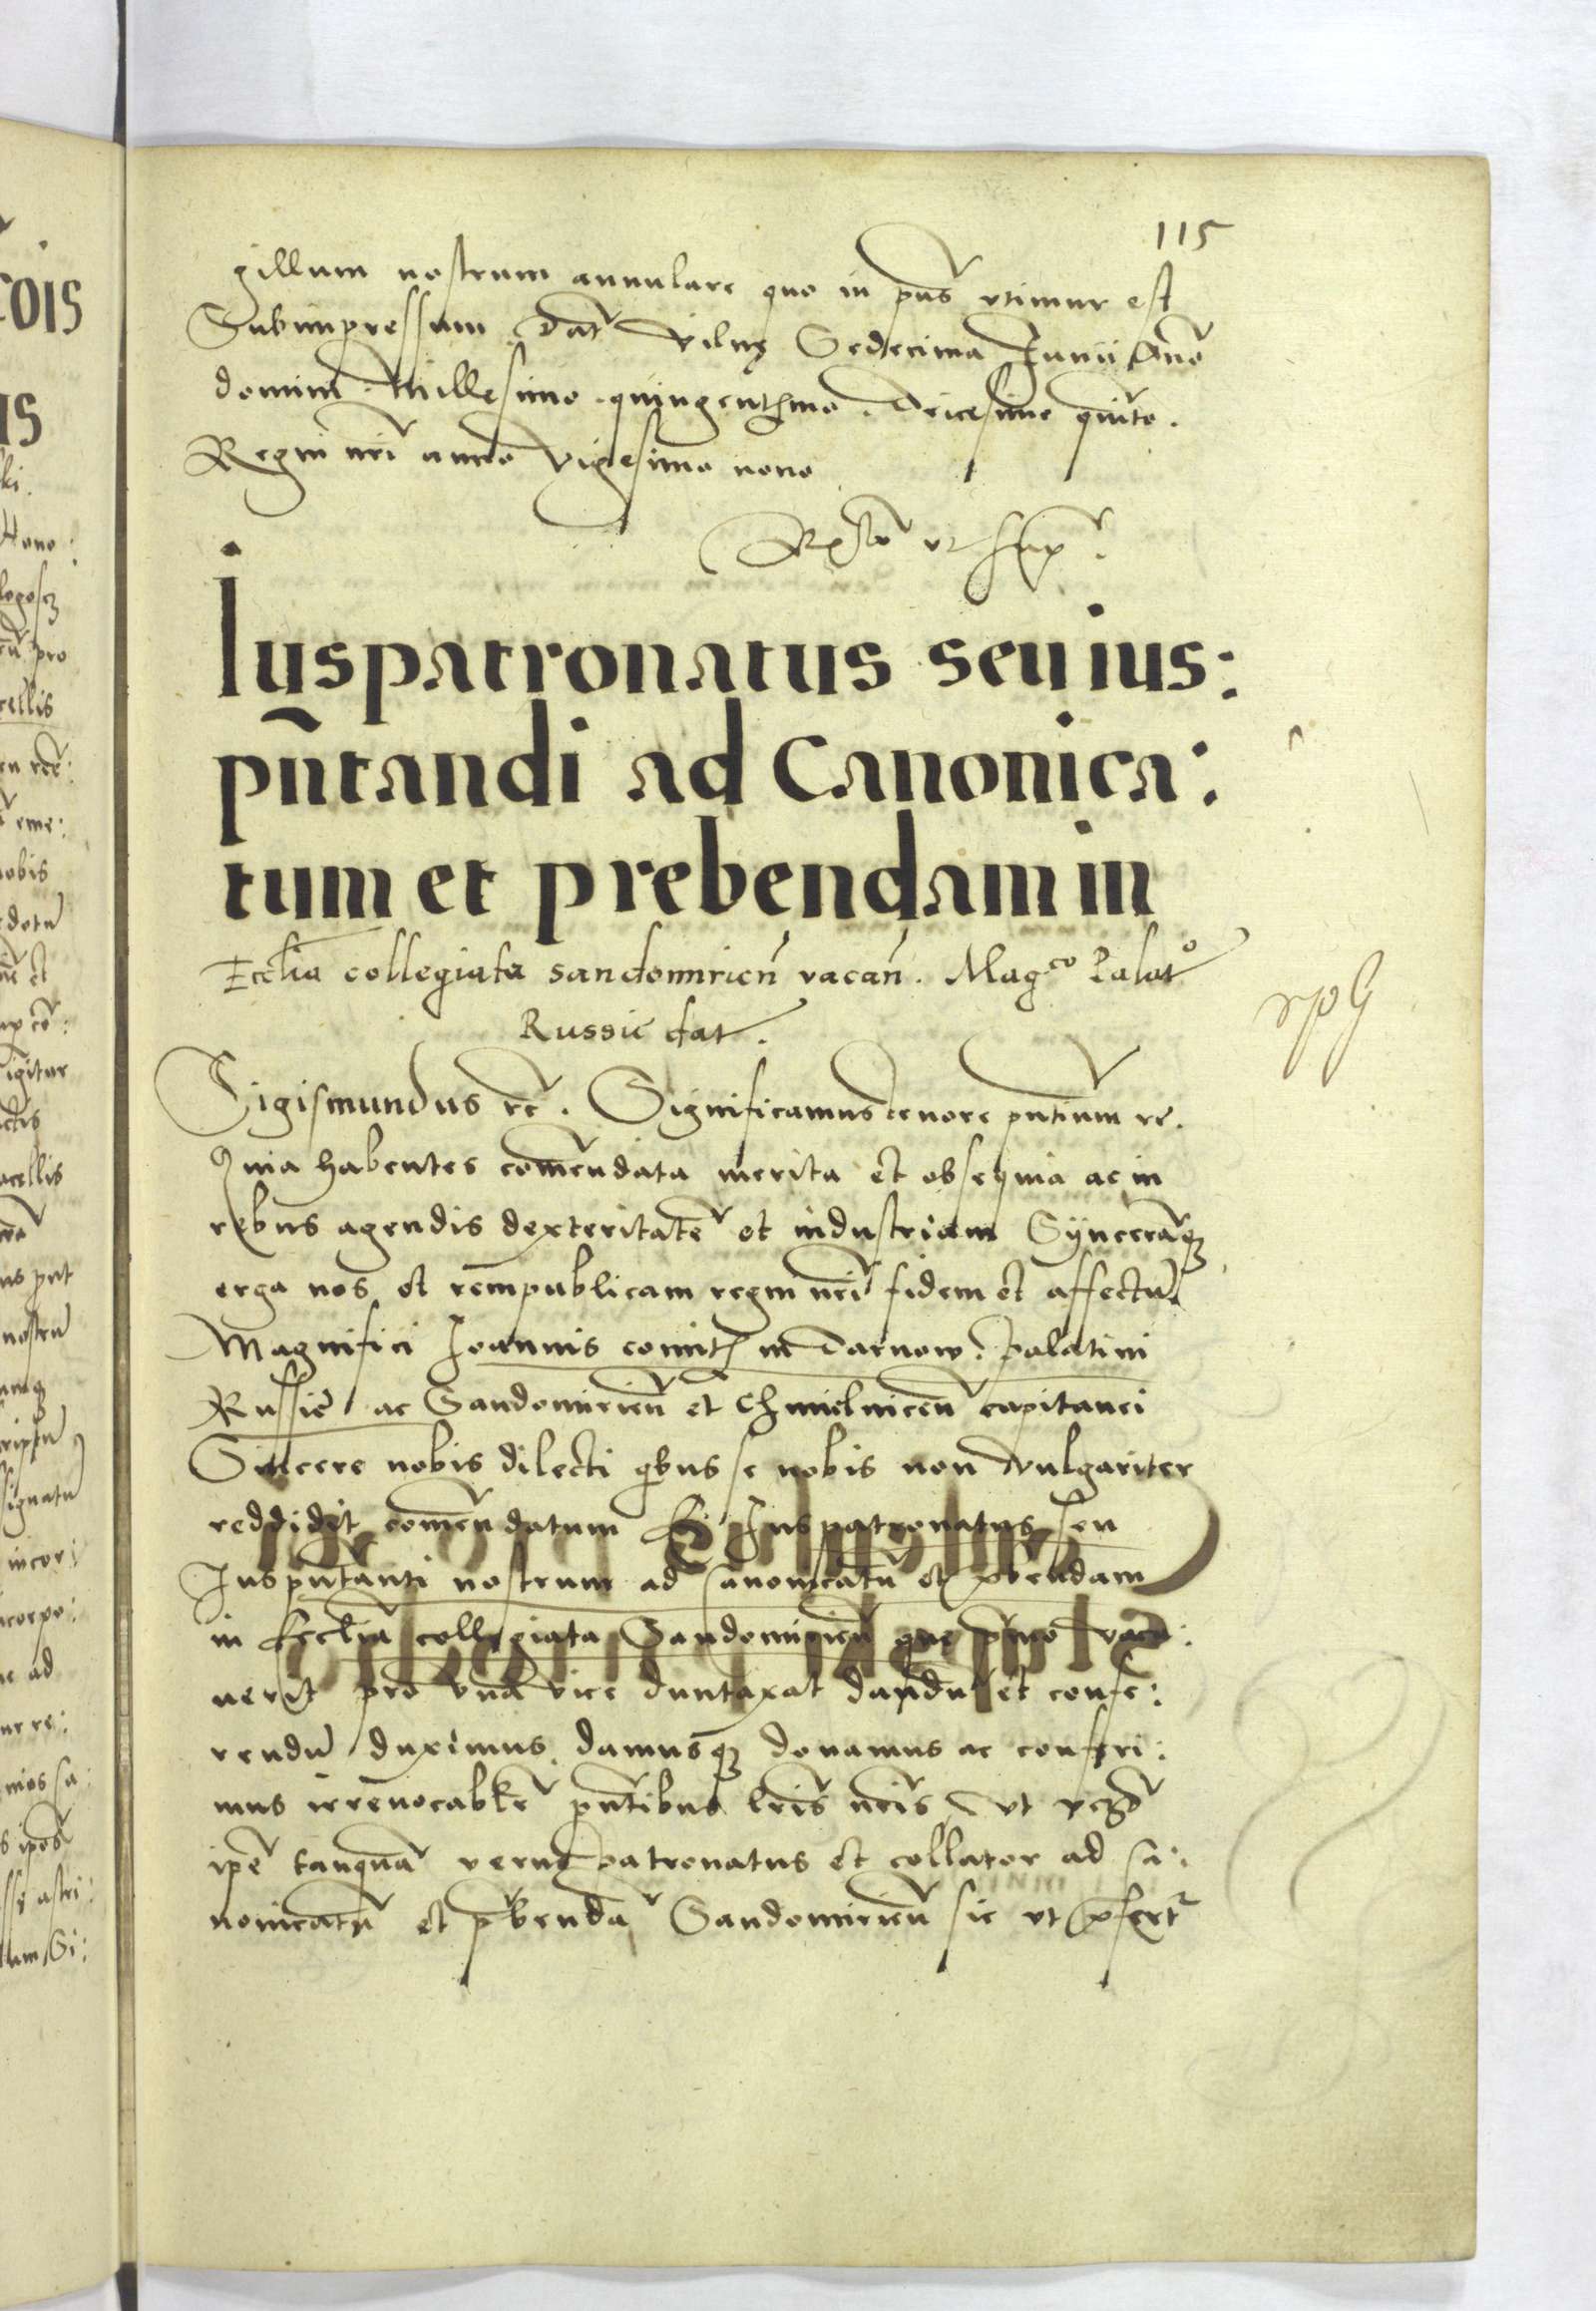 115
gillum nostrum annulare quo in pñs vtimur est
Subimpressum Dat Vilnę Sedecima Junii Año
domini Millesimo quingentmo Tricesimo quito.
Regni nri anno Vigesimo nono
ut supr
Iuspatronatus seu ius:
pñtandi ad Canonica:
tum et prebendam in
Ecclia collegiata sandomirieñ vacañ. Mag.co Palat.o
Russie dat.
Sigismundus rc. Significamus tenore pntium rc.
Quia habentes comendata merita et obsequia ac in
rebus agendis dexteritate et industriam Synceraq
erga nos et rempublicam regni nri fidem et affectu
Magnifici Joannis comit in Tarnow Palatini
Russie ac Sandomirien et Chmielnicen capitanei
Sincere nobis dilecti qbus se nobis non vulgariter
reddidit comendatum Ei Juspatronatus seu
Juspntanti nostrum ad Canonicatu et prbendam
in Ecclia collegiata Sandomirien que primo vaca:
uerit pro vna vice duntaxat dandu et confe:
rendu duximus damusq donamus ac conferi:
mus irreuocablr pntibus lris nris Vt
ipe tanqua verus patronatus et collator ad Ca:
nonicatu et prbenda Sandomirien sic ut prfert